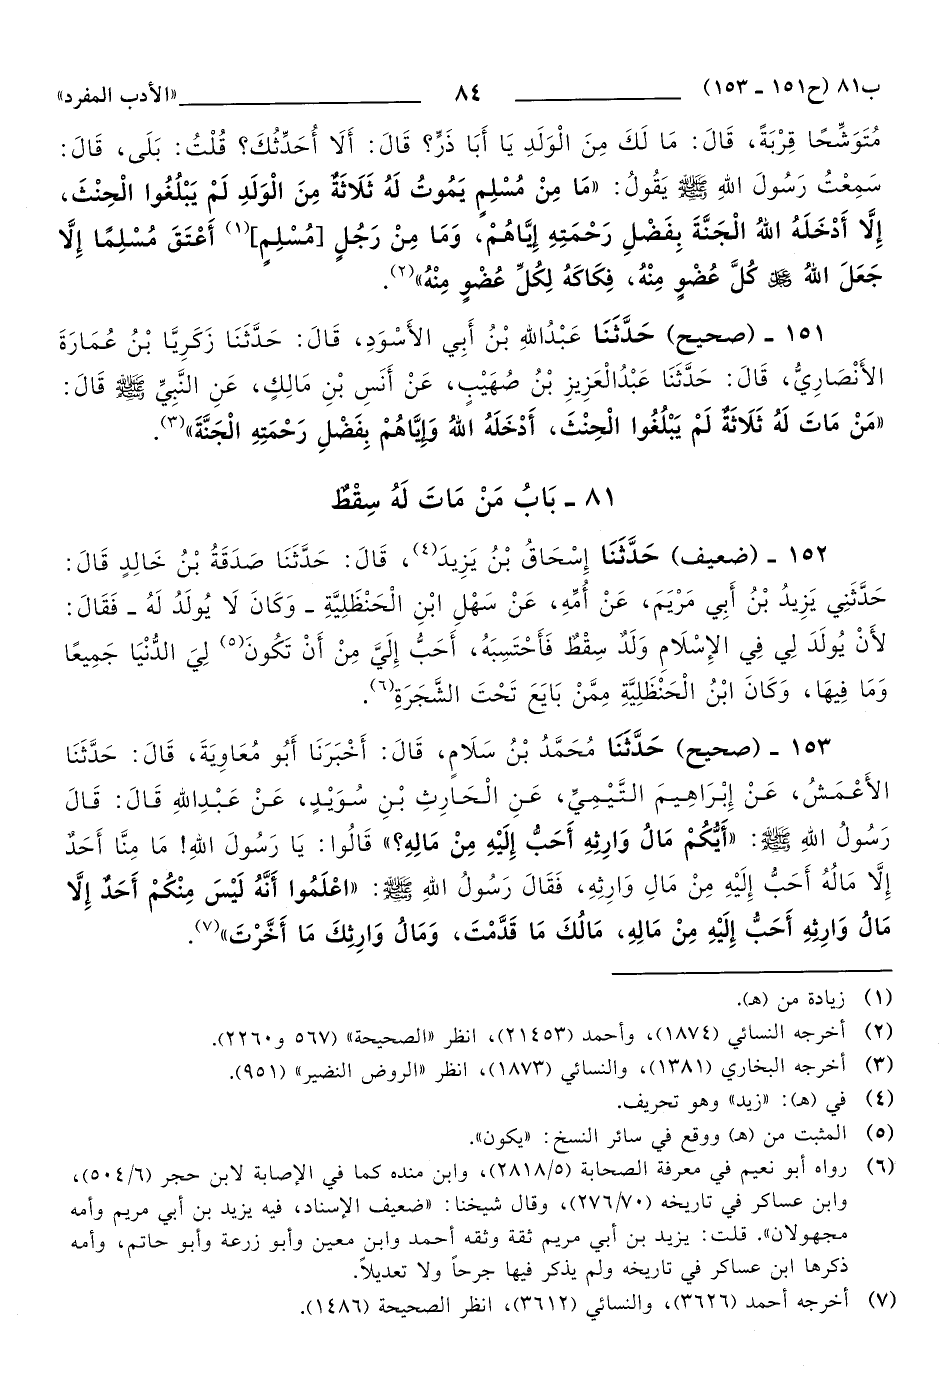 ب٨١ (ح١٥١ ـ ١٥٣) ٨٤ «الأدب المفرد»
مُتَوَشِّحًا قِرْبَةً، قَالَ: مَا لَكَ مِنَ الْوَلَدِ يَا أَبَا ذَرٍّ؟ قَالَ: أَلَا أُحَدِّثُكَ؟ قُلْتُ: بَلَى، قَالَ:
سَمِعْتُ رَسُولَ اللهِ ﷺ يَقُولُ: «مَا مِنْ مُسْلِمٍ يَمُوتُ لَهُ ثَلَاثَةٌ مِنَ الْوَلَدِ لَمْ يَبْلُغُوا الْحِنْثَ،
إِلَّا أَدْخَلَهُ اللهُ الْجَنَّةَ بِفَضْلِ رَحْمَتِهِ إِيَّاهُمْ، وَمَا مِنْ رَجُلٍ [مُسْلِمٍ](١) أَعْتَقَ مُسْلِمًا إِلَّا
جَعَلَ اللهُ ﷻ كُلَّ عُضْوٍ مِنْهُ، فِكَاكَهُ لِكُلِّ عُضْوٍ مِنْهُ»(٢).
١٥١ ـ (صحيح) حَدَّثَنَا عَبْدُاللهِ بْنُ أَبِي الأَسْوَدِ، قَالَ: حَدَّثَنَا زَكَرِيَّا بْنُ عُمَارَةَ
الأَنْصَارِيُّ، قَالَ: حَدَّثَنَا عَبْدُالْعَزِيزِ بْنُ صُهَيْبٍ، عَنْ أَنَسِ بْنِ مَالِكٍ، عَنِ النَّبِيِّ ﷺ قَالَ:
«مَنْ مَاتَ لَهُ ثَلَاثَةٌ لَمْ يَبْلُغُوا الْحِنْثَ، أَدْخَلَهُ اللهُ وَإِيَّاهُمْ بِفَضْلِ رَحْمَتِهِ الْجَنَّةَ»(٣).
٨١ ـ بَابُ مَنْ مَاتَ لَهُ سِقْطٌ
١٥٢ ـ (ضعيف) حَدَّثَنَا إِسْحَاقُ بْنُ يَزِيدَ(٤)، قَالَ: حَدَّثَنَا صَدَقَةُ بْنُ خَالِدٍ قَالَ:
حَدَّثَنِي يَزِيدُ بْنُ أَبِي مَرْيَمَ، عَنْ أُمِّهِ، عَنْ سَهْلِ ابْنِ الْحَنْظَلِيَّةِ ـ وَكَانَ لَا يُولَدُ لَهُ ـ فَقَالَ:
لأَنْ يُولَدَ لِي فِي الإِسْلَامِ وَلَدٌ سِقْطٌ فَأَحْتَسِبَهُ، أَحَبُّ إِلَيَّ مِنْ أَنْ تَكُونَ(٥) لِيَ الدُّنْيَا جَمِيعًا
وَمَا فِيهَا، وَكَانَ ابْنُ الْحَنْظَلِيَّةِ مِمَّنْ بَايَعَ تَحْتَ الشَّجَرَةِ(٦).
١٥٣ ـ (صحيح) حَدَّثَنَا مُحَمَّدُ بْنُ سَلَامٍ، قَالَ: أَخْبَرَنَا أَبُو مُعَاوِيَةَ، قَالَ: حَدَّثَنَا
الأَعْمَشُ، عَنْ إِبْرَاهِيمَ التَّيْمِيِّ، عَنِ الْحَارِثِ بْنِ سُوَيْدٍ، عَنْ عَبْدِاللهِ قَالَ: قَالَ
رَسُولُ اللهِ ﷺ: «أَيُّكُمْ مَالُ وَارِثِهِ أَحَبُّ إِلَيْهِ مِنْ مَالِهِ؟» قَالُوا: يَا رَسُولَ اللهِ! مَا مِنَّا أَحَدٌ
إِلَّا مَالُهُ أَحَبُّ إِلَيْهِ مِنْ مَالِ وَارِثِهِ، فَقَالَ رَسُولُ اللهِ ﷺ: «اعْلَمُوا أَنَّهُ لَيْسَ مِنْكُمْ أَحَدٌ إِلَّا
مَالُ وَارِثِهِ أَحَبُّ إِلَيْهِ مِنْ مَالِهِ، مَالُكَ مَا قَدَّمْتَ، وَمَالُ وَارِثِكَ مَا أَخَّرْتَ»(٧).
(١) زيادة من (هـ).
(٢) أخرجه النسائي (١٨٧٤)، وأحمد (٢١٤٥٣)، انظر «الصحيحة» (٥٦٧ و٢٢٦٠).
(٣) أخرجه البخاري (١٣٨١)، والنسائي (١٨٧٣)، انظر «الروض النضير» (٩٥١).
(٤) في (هـ): «زيد» وهو تحريف.
(٥) المثبت من (هـ) ووقع في سائر النسخ: «يكون».
(٦) رواه أبو نعيم في معرفة الصحابة (٢٨١٨/٥)، وابن منده كما في الإصابة لابن حجر (٥٠٤/٦)،
وابن عساكر في تاريخه (٢٧٦/٧٠)، وقال شيخنا: «ضعيف الإسناد، فيه يزيد بن أبي مريم وأمه
مجهولان». قلت: يزيد بن أبي مريم ثقة وثقه أحمد وابن معين وأبو زرعة وأبو حاتم، وأمه
ذكرها ابن عساكر في تاريخه ولم يذكر فيها جرحاً ولا تعديلاً.
(٧) أخرجه أحمد (٣٦٢٦)، والنسائي (٣٦١٢)، انظر الصحيحة (١٤٨٦).